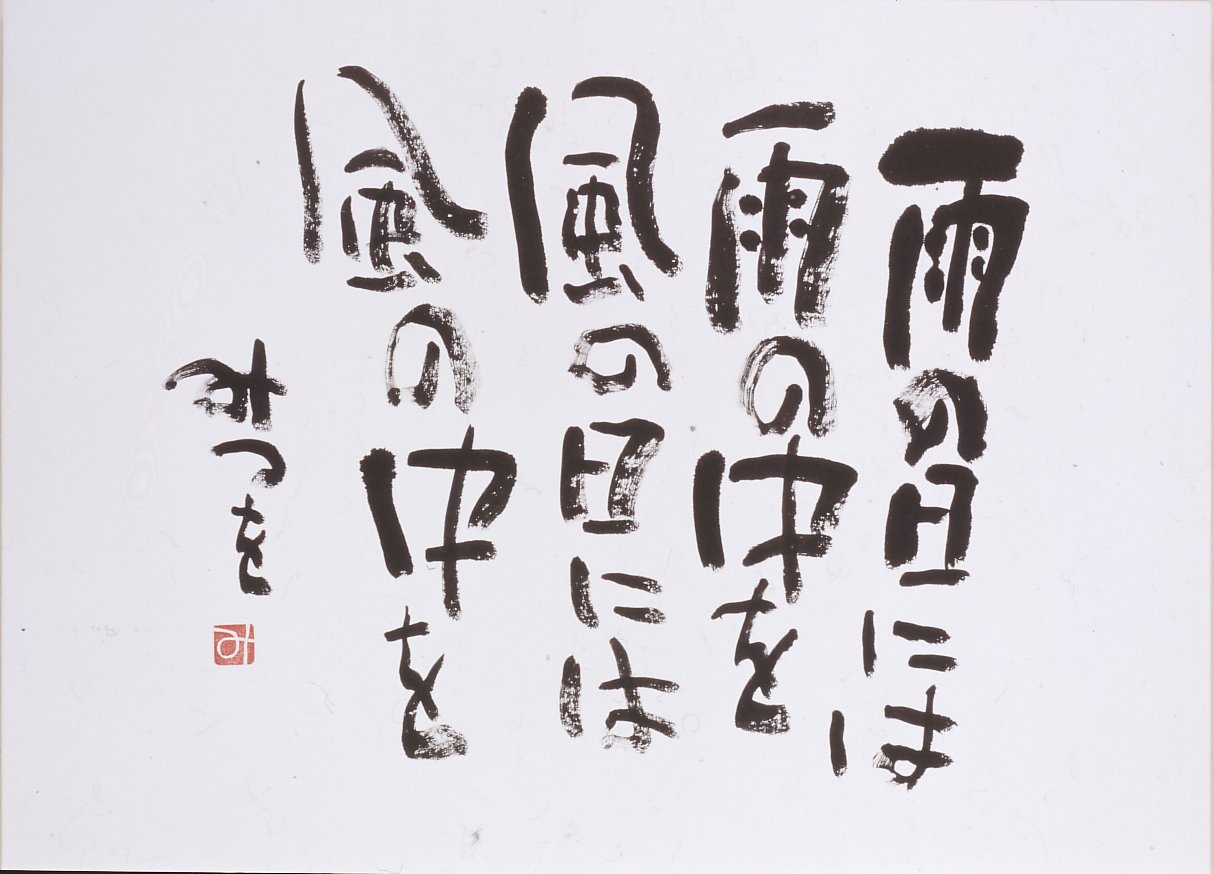 雨の日には
雨の中を
風の日には
風の中を
みつを
み